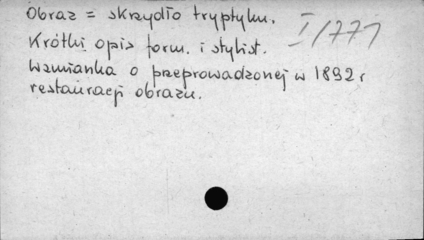 Obraz = skrzydło tryptyku.
I/771
Krótki opis form. i stylist.
Wzmianka o przeprowadzonej w 1892 r
restauracji obrazu.